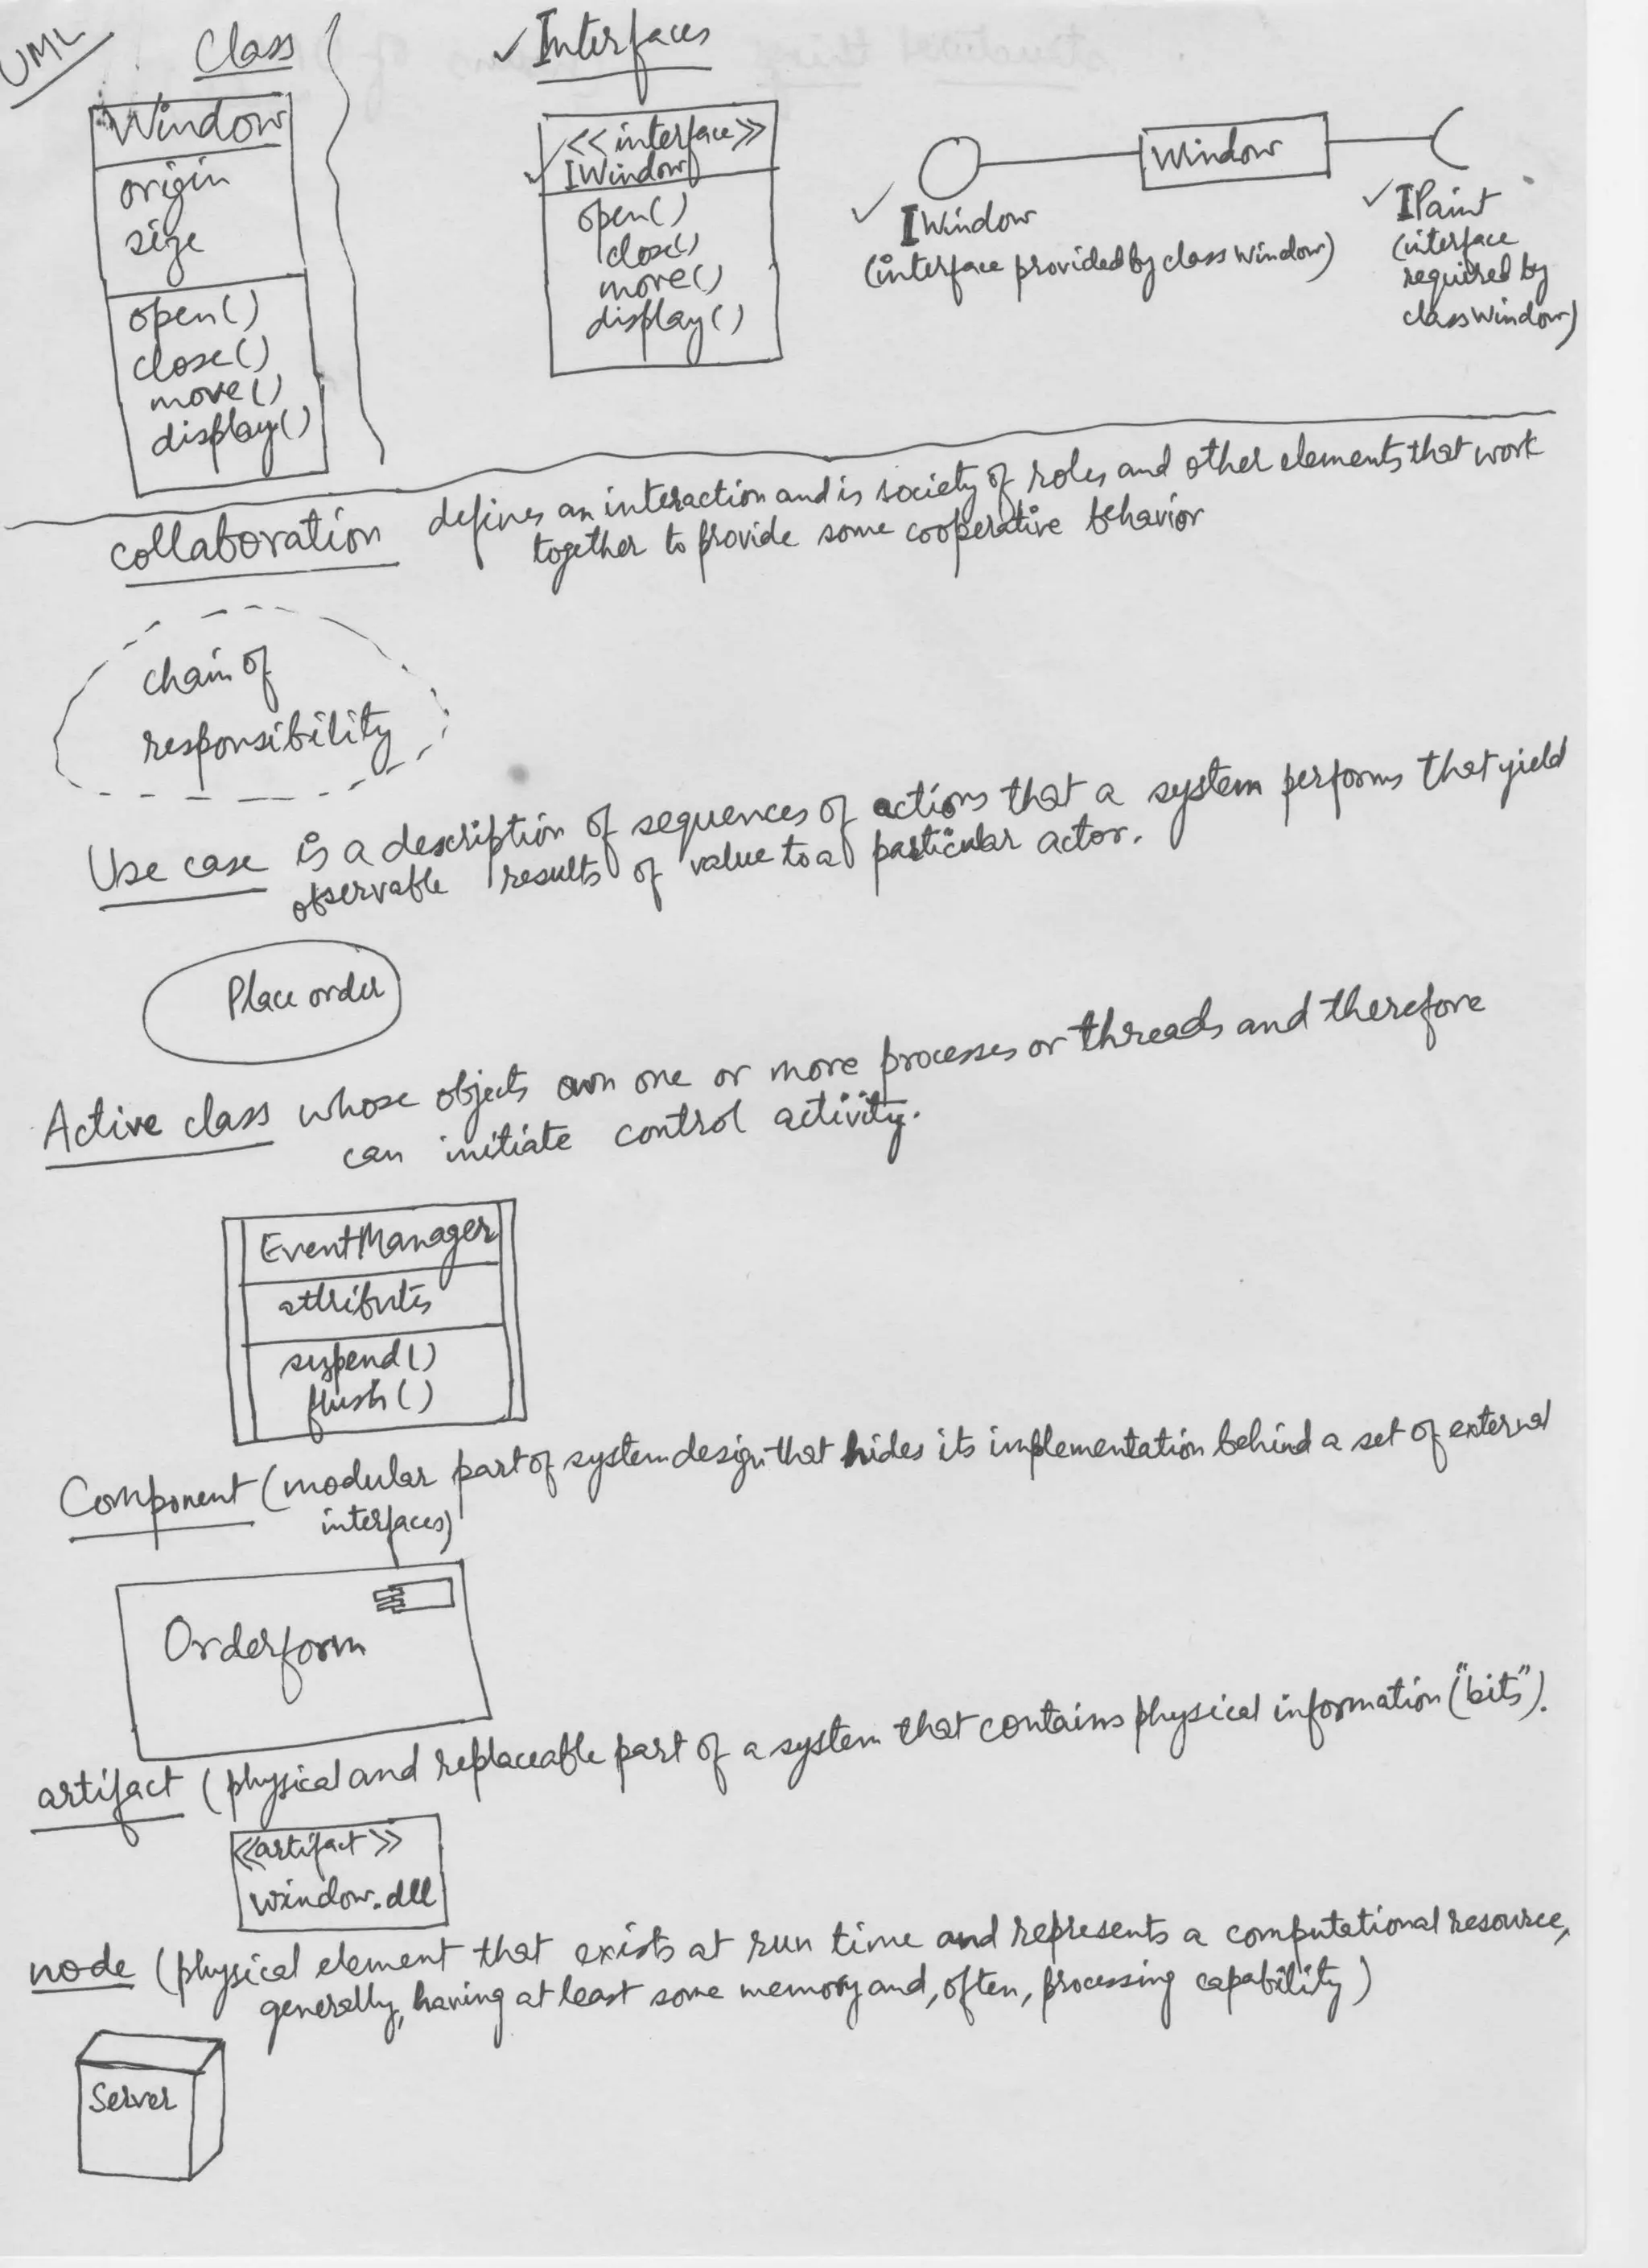 UML
Class
Window
origin
size
open()
close()
move()
display()
✓ Interfaces
<<interface>>
✓ IWindow
open()
close()
move()
display()
Window
✓ IWindow
(interface provided by class Window)
✓ IPaint
(interface
required by
class Window)
collaboration defines an interaction and is society of roles and other elements that work
together to provide some cooperative behavior
chain of
responsibility
Use case is a description of sequences of actions that a system performs that yield
observable results of value to a particular actor.
Place order
Active class whose objects own one or more processes or threads and therefore
can initiate control activity.
EventManager
attributes
suspend()
flush()
Component (modular part of system design that hides its implementation behind a set of external
interfaces)
Orderform
artifact (physical and replaceable part of a system that contains physical information ("bits").
<<artifact>>
window.dll
node (physical element that exists at run time and represents a computational resource,
generally, having at least some memory and, often, processing capability)
Server